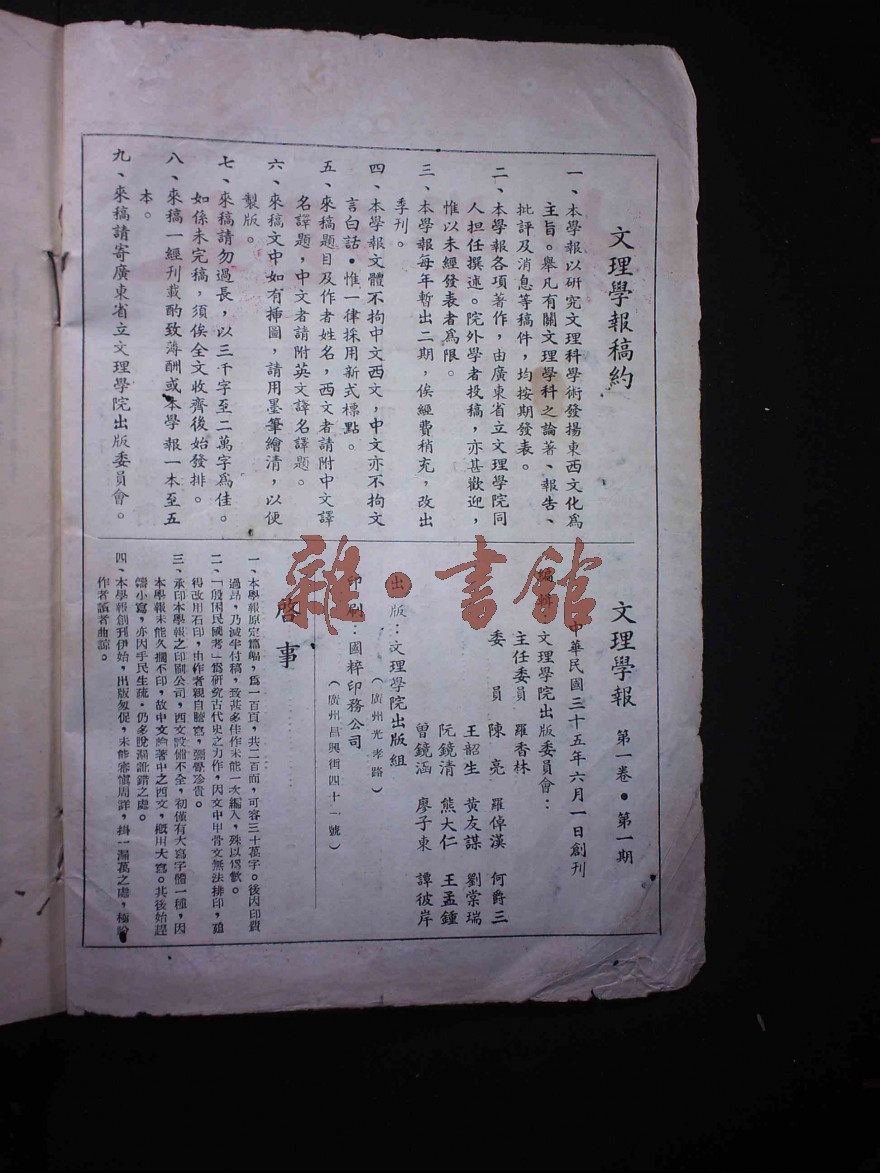 文理學報稿約
一、本學報以研究文理科學術發揚東西文化爲
主旨。舉凡有關文理學科之論著、報告、
批評及消息等稿件，均按期發表。
二、本學報各項著作，由廣東省立文理學院同
人担任撰述。院外學者投稿，亦甚歡迎，
惟以未經發表者爲限。
三、本學報每年暫出二期，俟經費稍充，改出
季刊。
四、本學報文體不拘中文西文，中文亦不拘文
言白話。惟一律採用新式標點。
五、來稿題目及作者姓名，西文者請附中文譯
名譯題，中文者請附英文譯名譯題。
六、來稿文中如有揷圖，請用墨筆繪清，以便
製版。
七、來稿請勿過長，以三千字至二萬字爲佳。
如係未完稿，須俟全文收齊後始發排。
八、來稿一經刊載酌致薄酬或本學報一本至五
本。
九、來稿請寄廣東省立文理學院出版委員會。
文理學報 第一卷·第一期
中華民國三十五年六月一日創刊
編輯：文理學院出版委員會：
主任委員 羅香林
委員 陳亮 羅倬漢 何爵三
王韶生 黃友謀 劉棠瑞
阮鏡清 熊大仁 王孟鍾
曾鏡涵 廖子東 譚彼岸
出版：文理學院出版組
（廣州光孝路）
印刷：國粹印務公司
（廣州昌興街四十一號）
啓事
一、本學報原定篇幅，爲一百頁，共二百面，可容三十萬字。後因印費
過昂，乃減半付稿，致甚多佳作未能一次編入，殊以爲歉。
二、「殷困民國考」爲研究古代史之力作，因文中甲骨文無法排印，迫
得改用石印，由作者親自謄寫，彌覺珍貴。
三、承印本學報之印刷公司，西文設備不全，初僅有大寫字體一種，因
本學報未能久擱不印，故中文論著中之西文，槪用大寫。其後始趕
鑄小寫，亦因手民生疏。仍多脫漏訛錯之處。
四、本學報創刊伊始，出版匆促，未能審愼周詳，掛一漏萬之處，極盼
作者讀者曲諒。
雜·書館